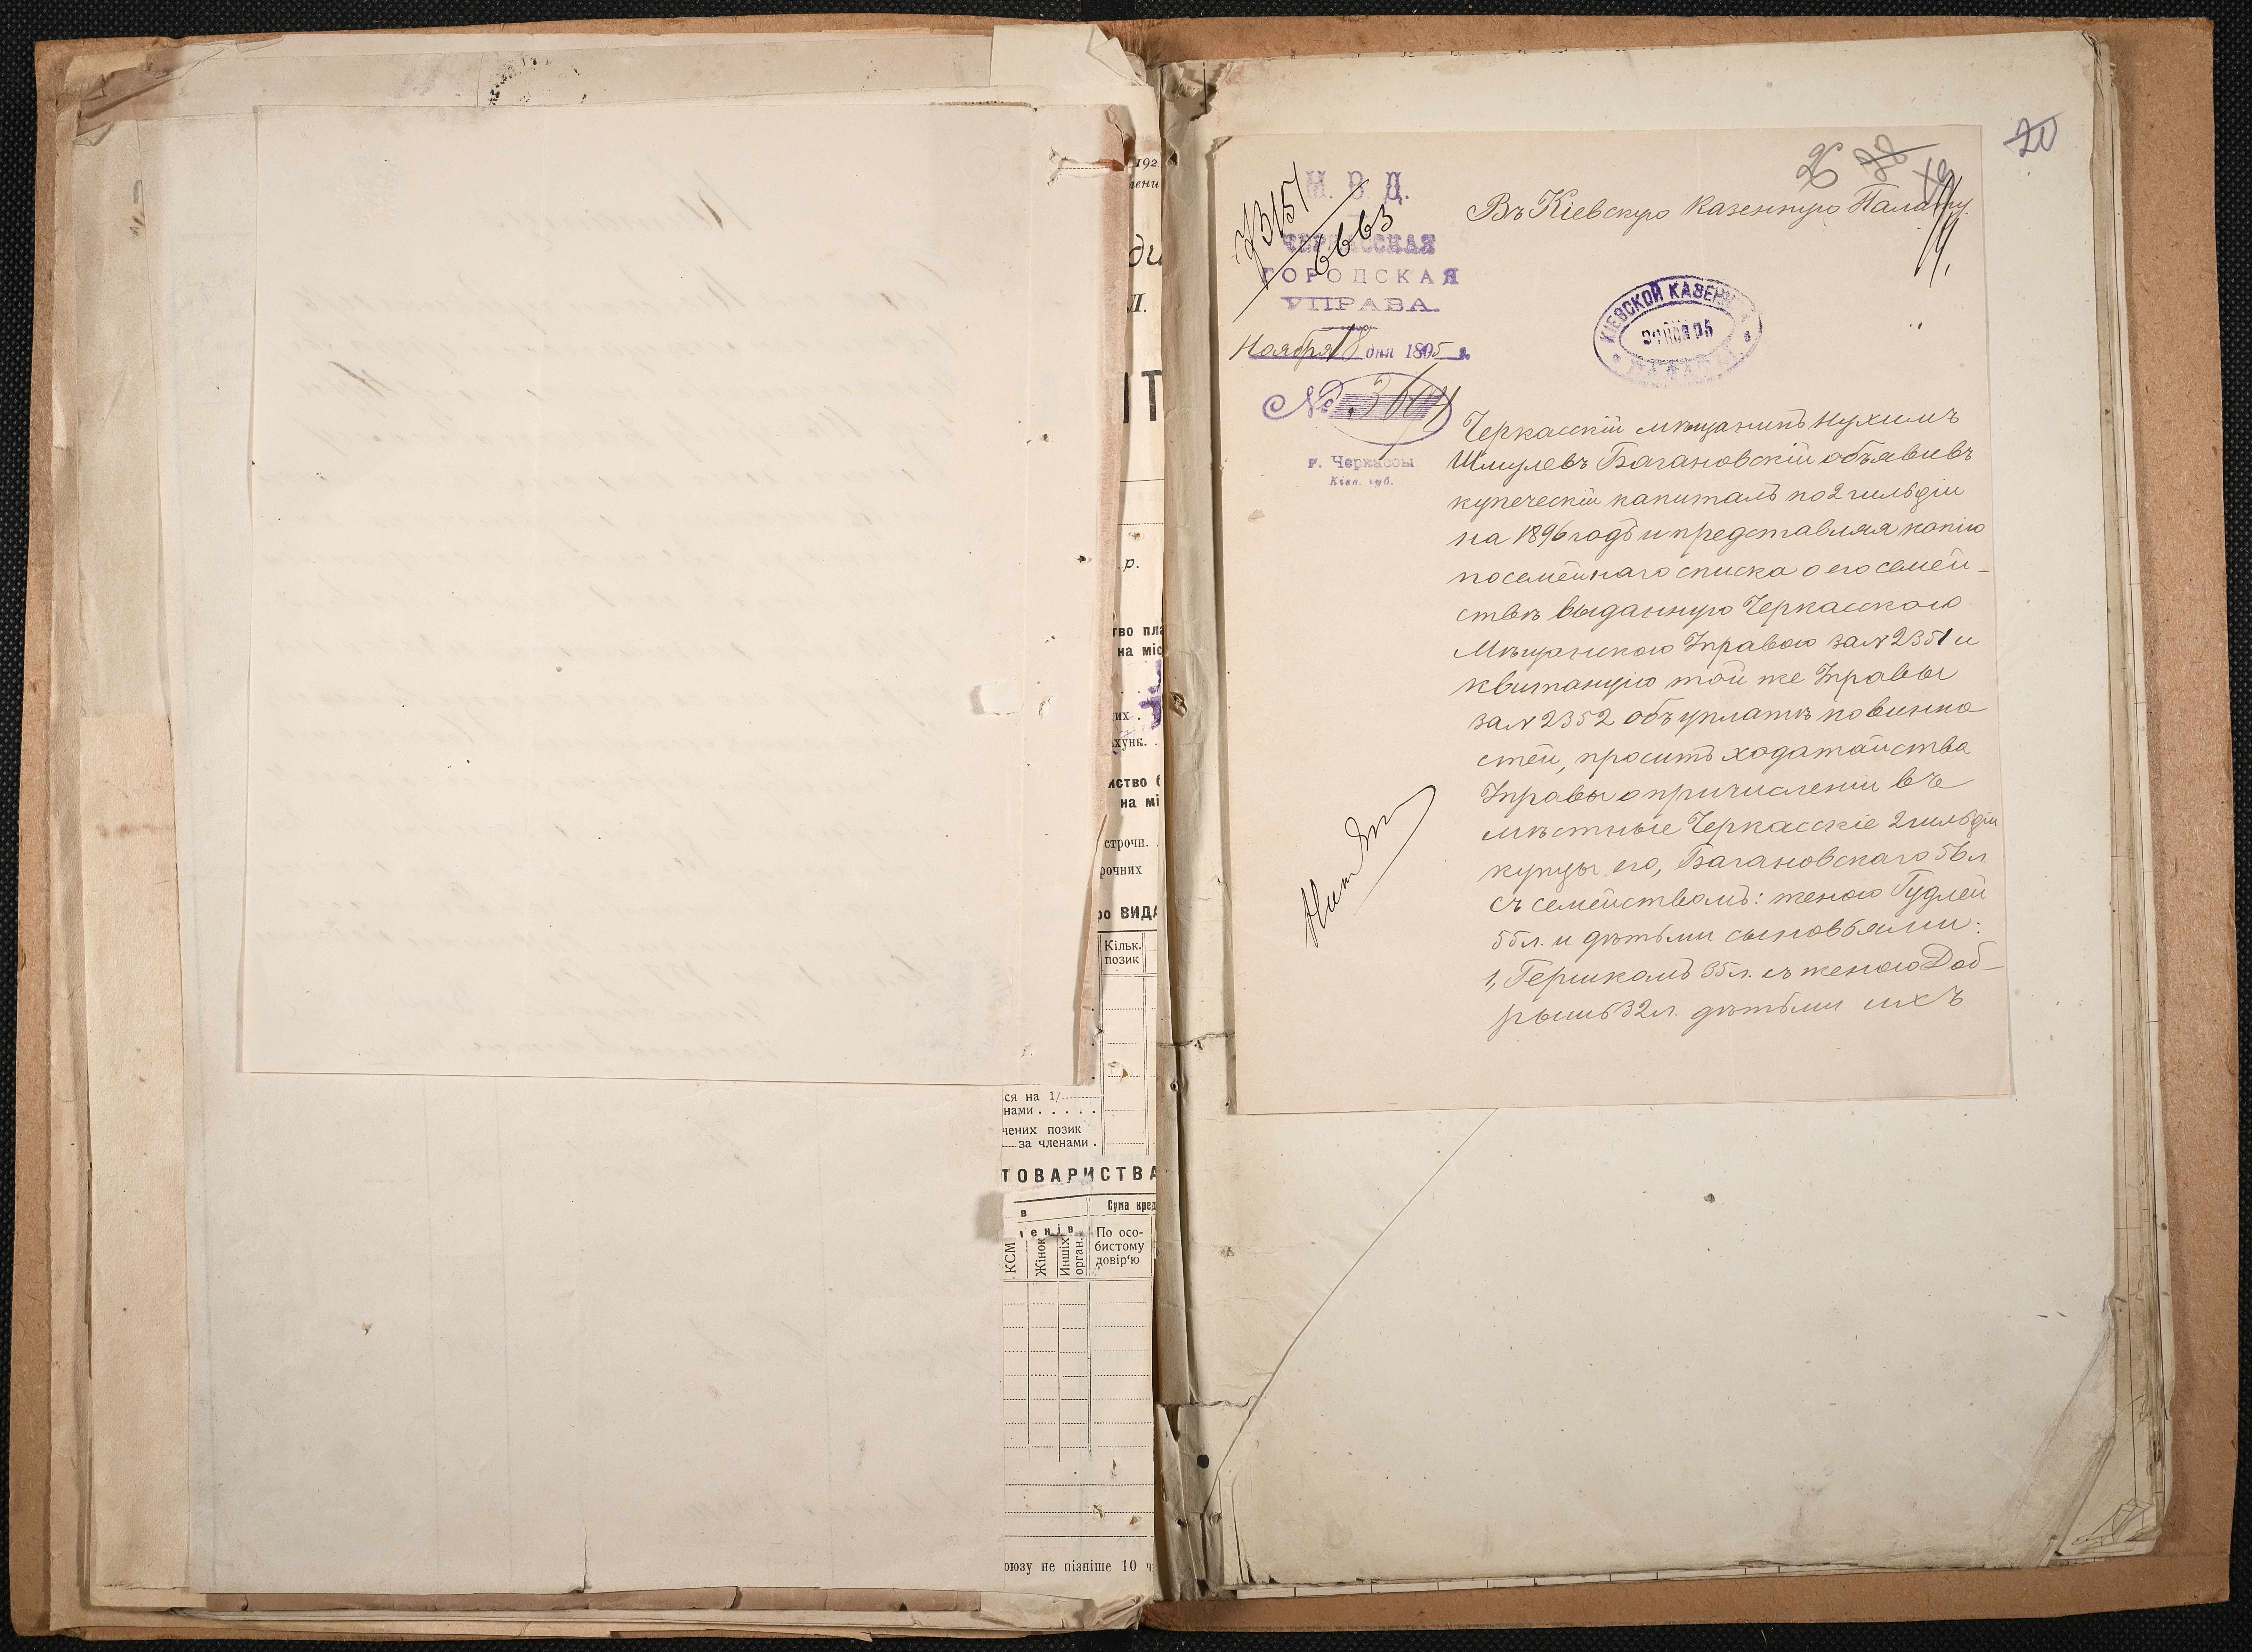 192
р.
на міс
хунк.
на мі
строчн.
рочних
ро ВИДА
Кільк.
позик
ся на 1/
нами . . . . .
чених позик
за членами .
ТОВАРИСТВА
в
Сума кред
КСМ
Жінок
Инших орган.
По осо-
бистому
довір'ю
оюзу не пізніше 10 ч
20
26
М. В. Д.
ЧЕРКАССКАЯ
ГОРОДСКАЯ
УПРАВА.
Ноября 18 дня 1895 г.
№ 3604
г. Черкассы
Кіев. губ.
73151
6663
Въ Кіевскую Казенную Палату.
КІЕВСКОЙ КАЗЕНН
ПАЛАТЫ
Черкасскій мѣщанинъ Нухимъ
Шмулевъ Багановскій объявивъ
купеческій капиталъ по 2 гильдіи
на 1896 годъ и представляя копію
посемейнаго списка о его семей-
ствѣ выданную Черкасскою
Мѣщанскою Управою за № 2351 и
квитанцію той же Управы
за № 2352 объ уплатѣ повинно
стей, проситъ ходатайства
Управы о причисленіи въ
мѣстные Черкасскіе 2 гильдіи
купцы его, Багановскаго 56 л.
съ семействомъ: женою Гудлей
55 л. и дѣтьми сыновьями:
1, Гершкомъ 35 л. съ женою Доб-
рышъ 32 л. дѣтьми ихъ